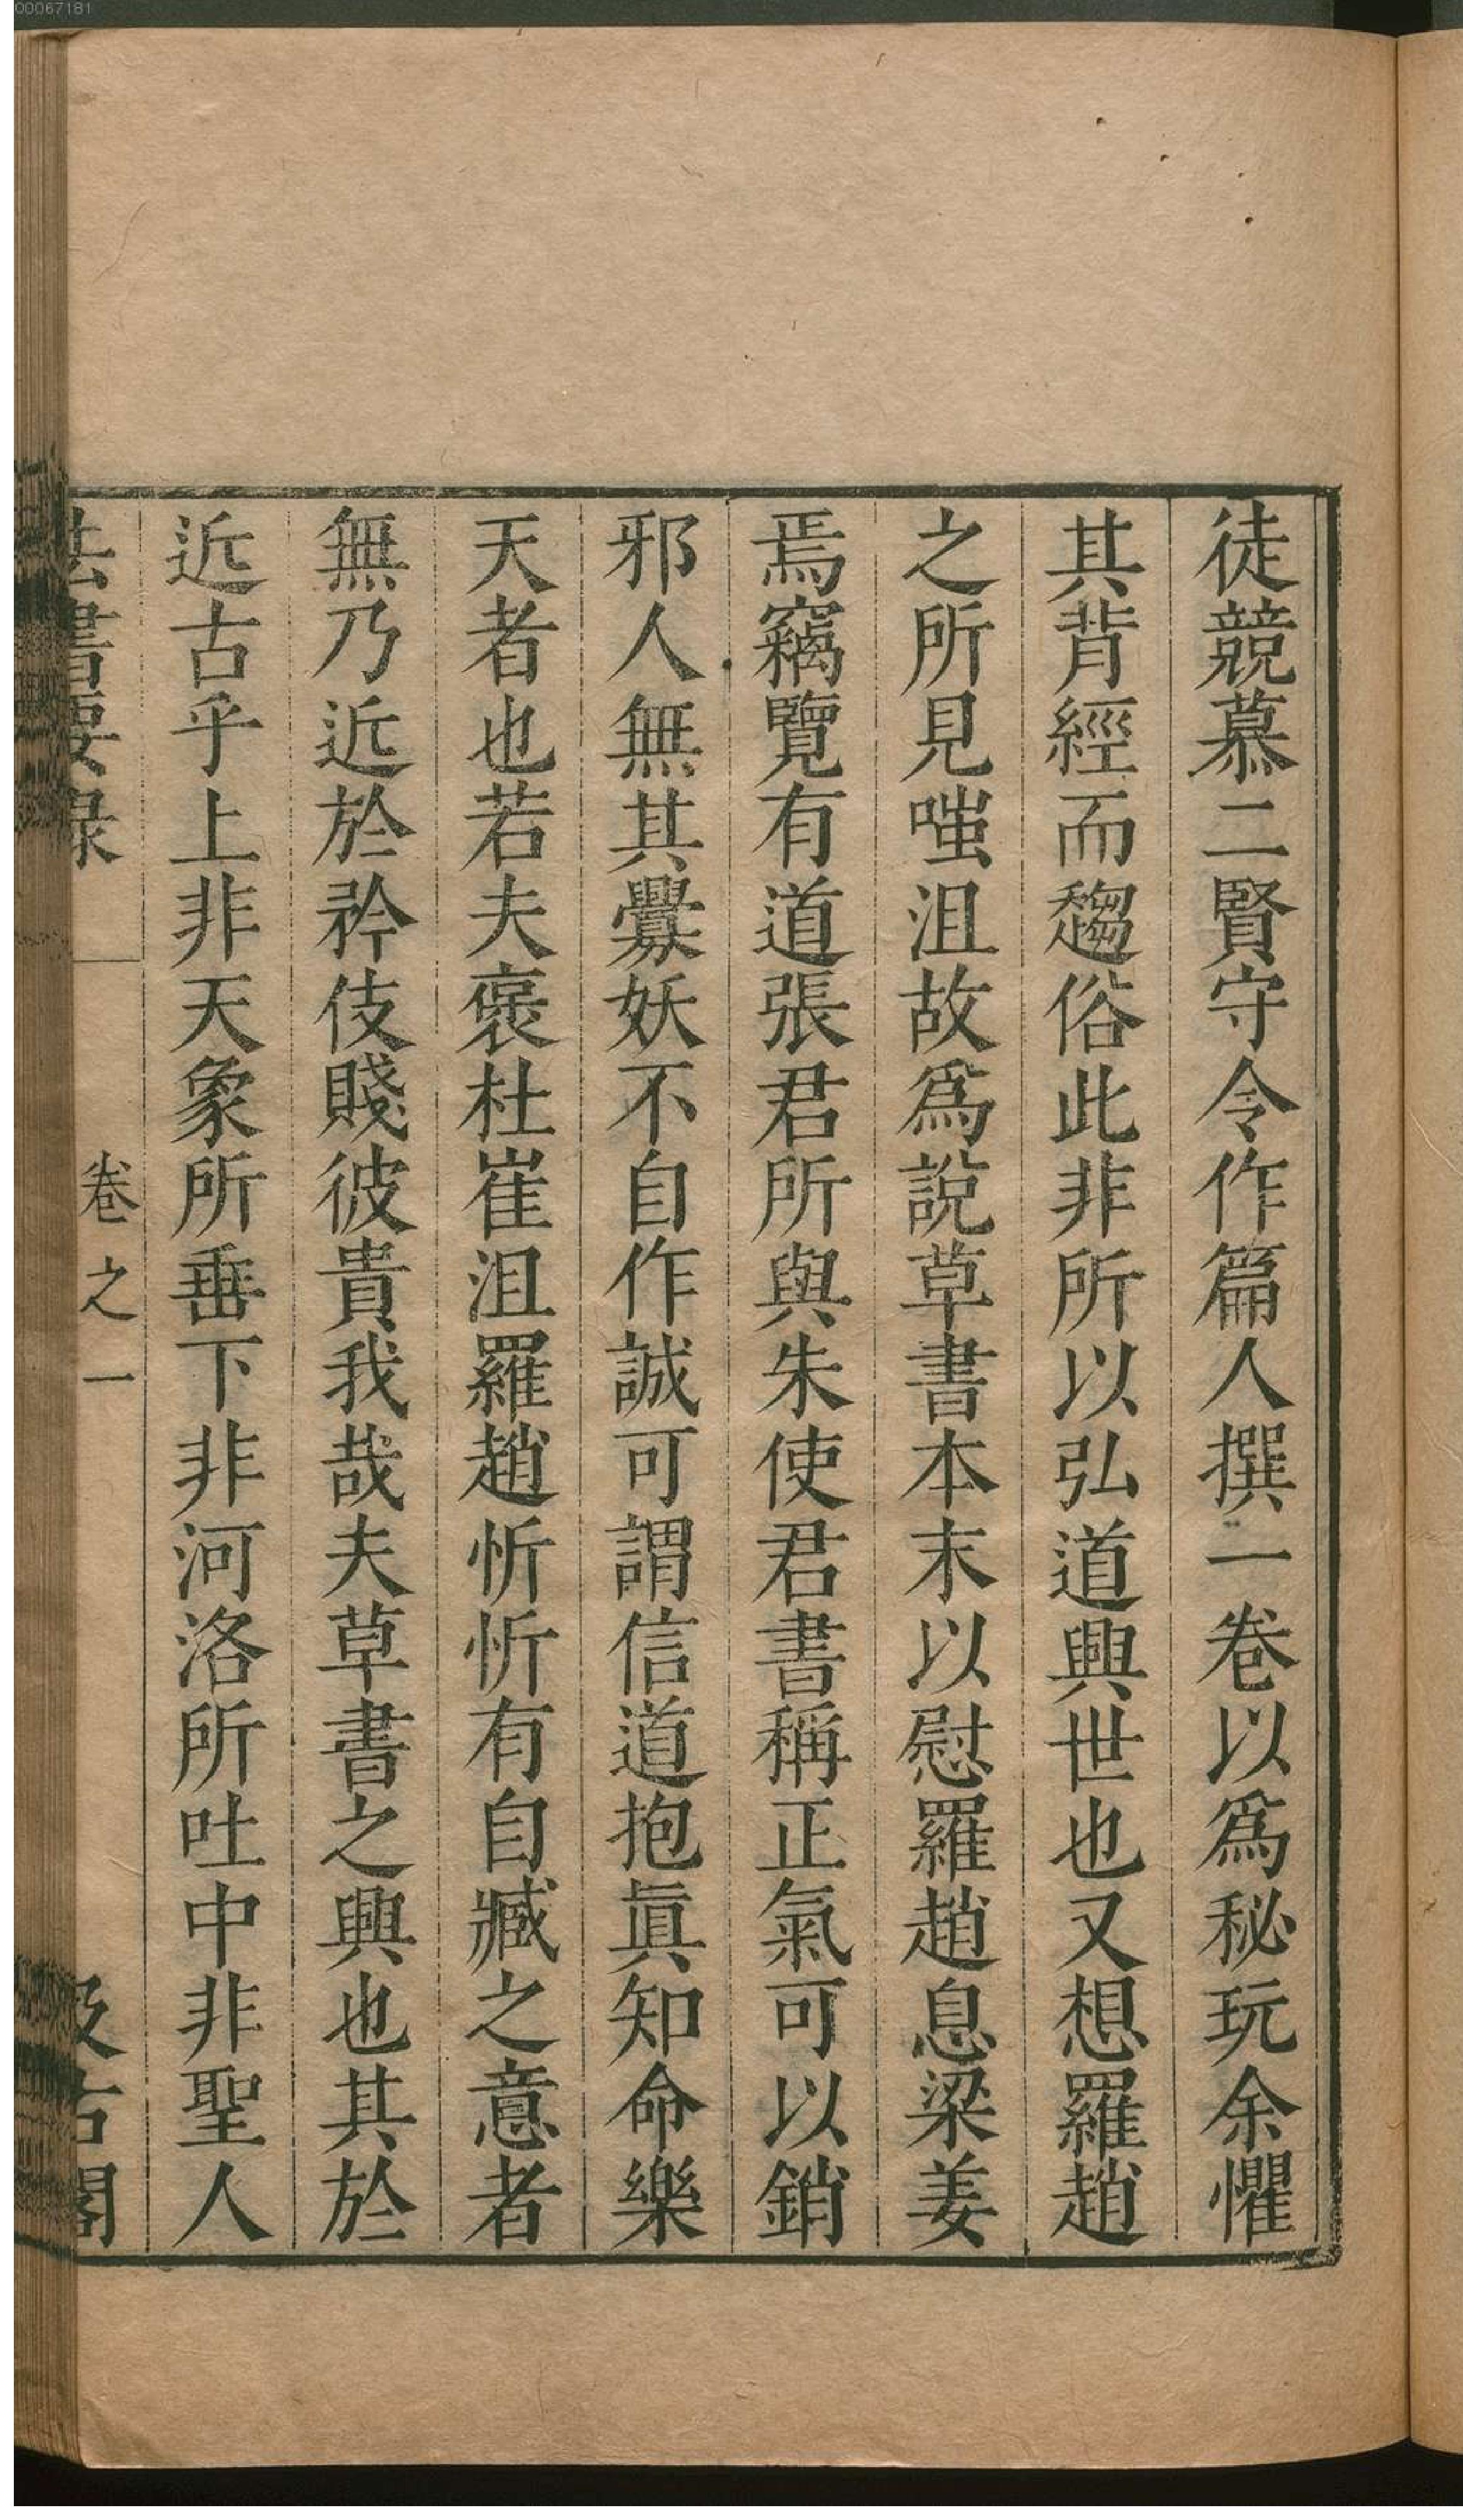 00067181
徒競慕二賢守令作篇人撰一卷以爲秘玩余懼
其背經而趨俗此非所以弘道興世也又想羅趙
之所見嗤沮故爲說草書本末以慰羅趙息梁姜
焉竊覽有道張君所與朱使君書稱正氣可以銷
邪人無其釁妖不自作誠可謂信道抱眞知命樂
天者也若夫褒杜崔沮羅趙忻忻有自臧之意者
無乃近於矜伎賤彼貴我哉夫草書之興也其於
近古乎上非天象所垂下非河洛所吐中非聖人
法書要录 卷之一 汲古閣